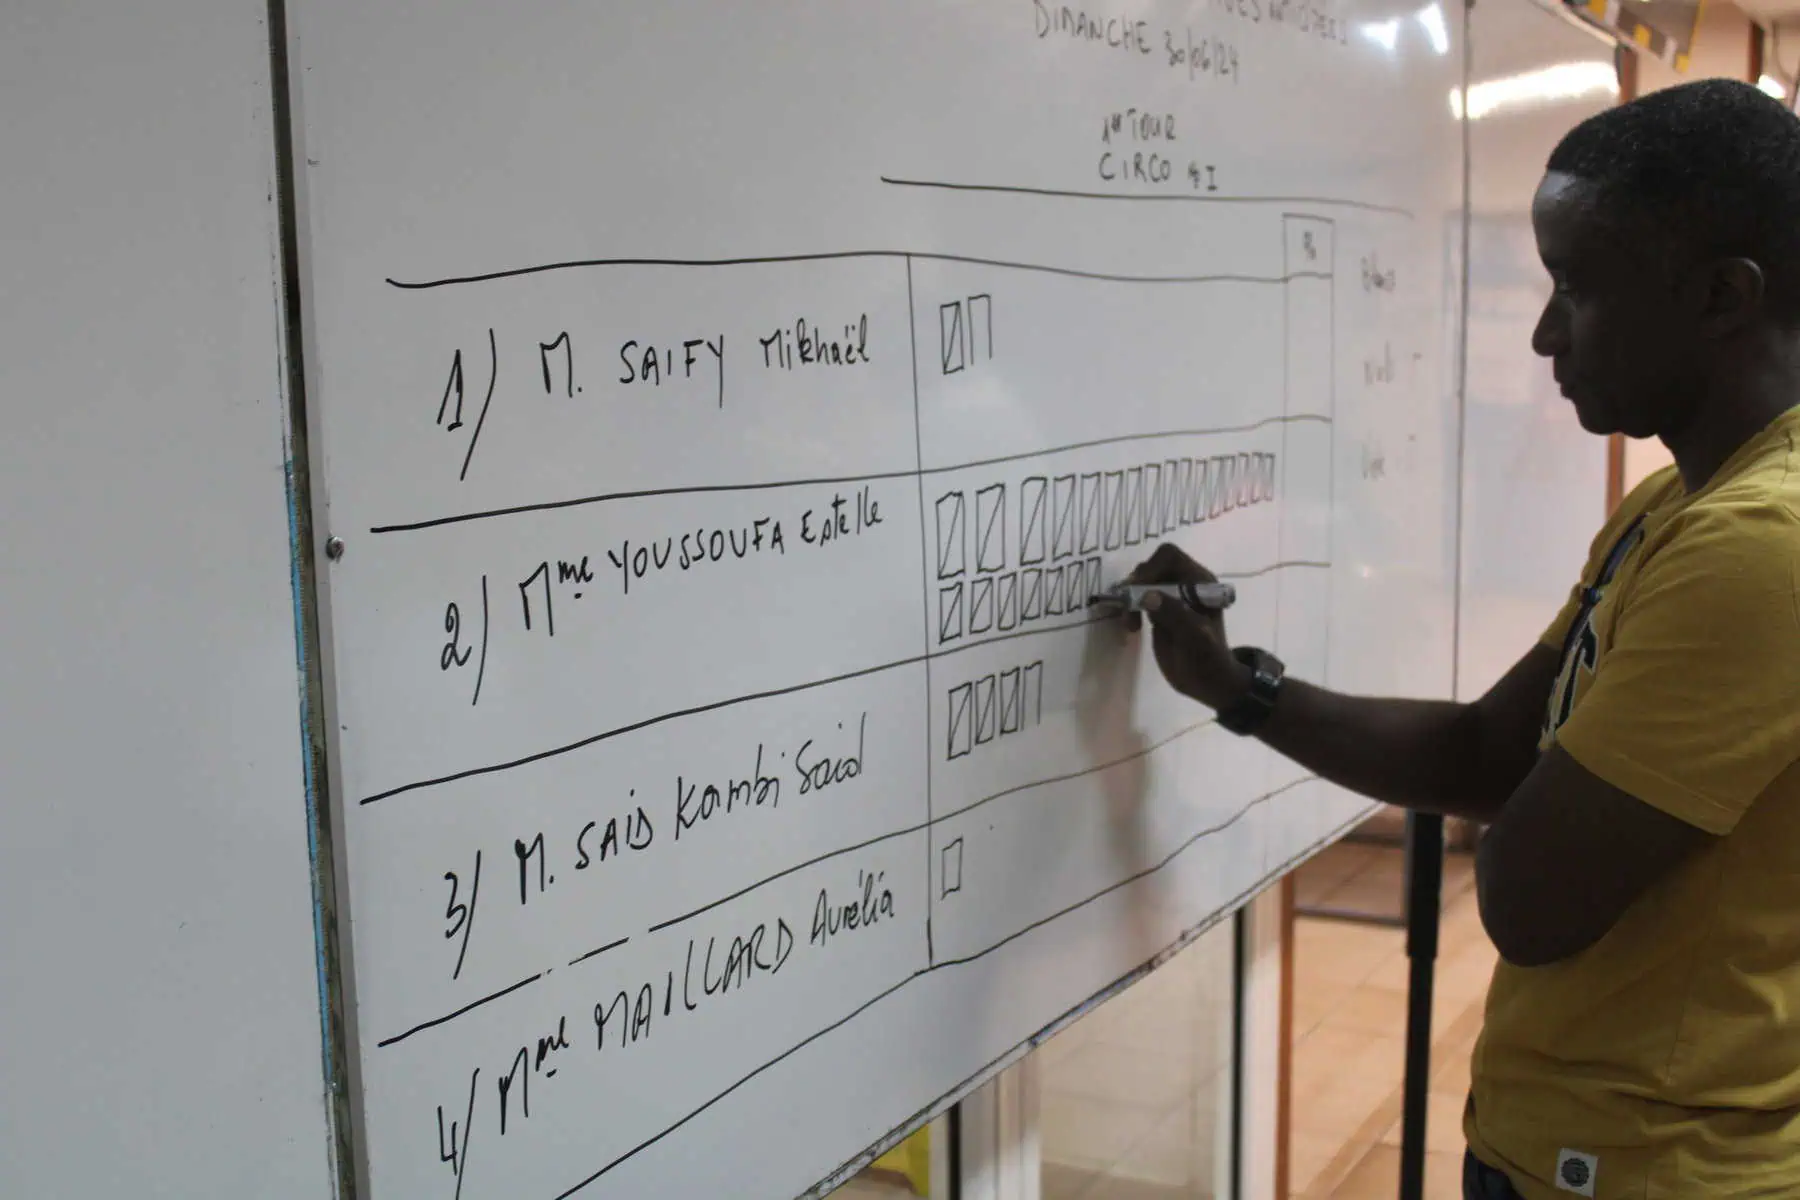 DIMANCHE 30/06/24
1er TOUR
CIRCO # I
%
1) M. SAIFY Mikhaël
2) Mme YOUSSOUFA Estelle
3) M. SAID Kambi Said
4) Mme MAILLARD Aurélia